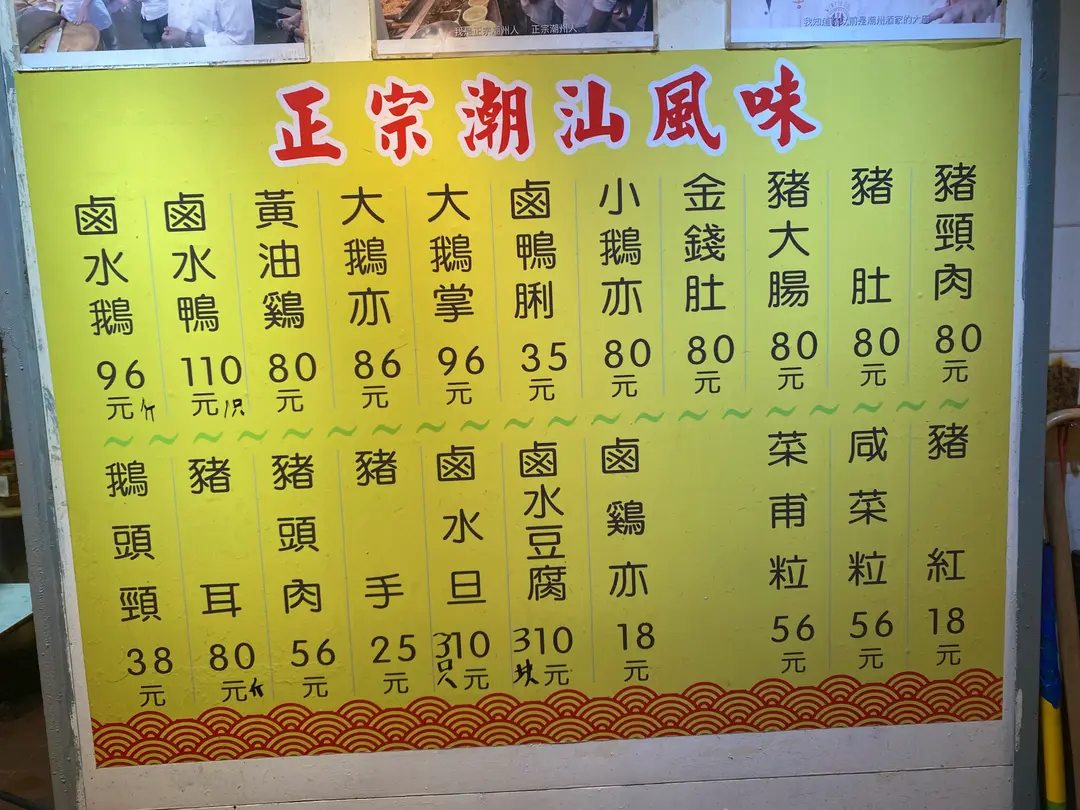 我是正宗潮州人 正宗潮州人
正宗潮汕風味
鹵水鵝 96元斤
鹵水鴨 110元/只
黃油鷄 80元
大鵝亦 86元
大鵝掌 96元
鹵鴨脷 35元
小鵝亦 80元
金錢肚 80元
豬大腸 80元
豬肚 80元
豬頸肉 80元
鵝頭頸 38元
豬耳 80元斤
豬頭肉 56元
豬手 25元
鹵水旦 3只10元
鹵水豆腐 3块10元
鹵鷄亦 18元
菜甫粒 56元
咸菜粒 56元
豬紅 18元